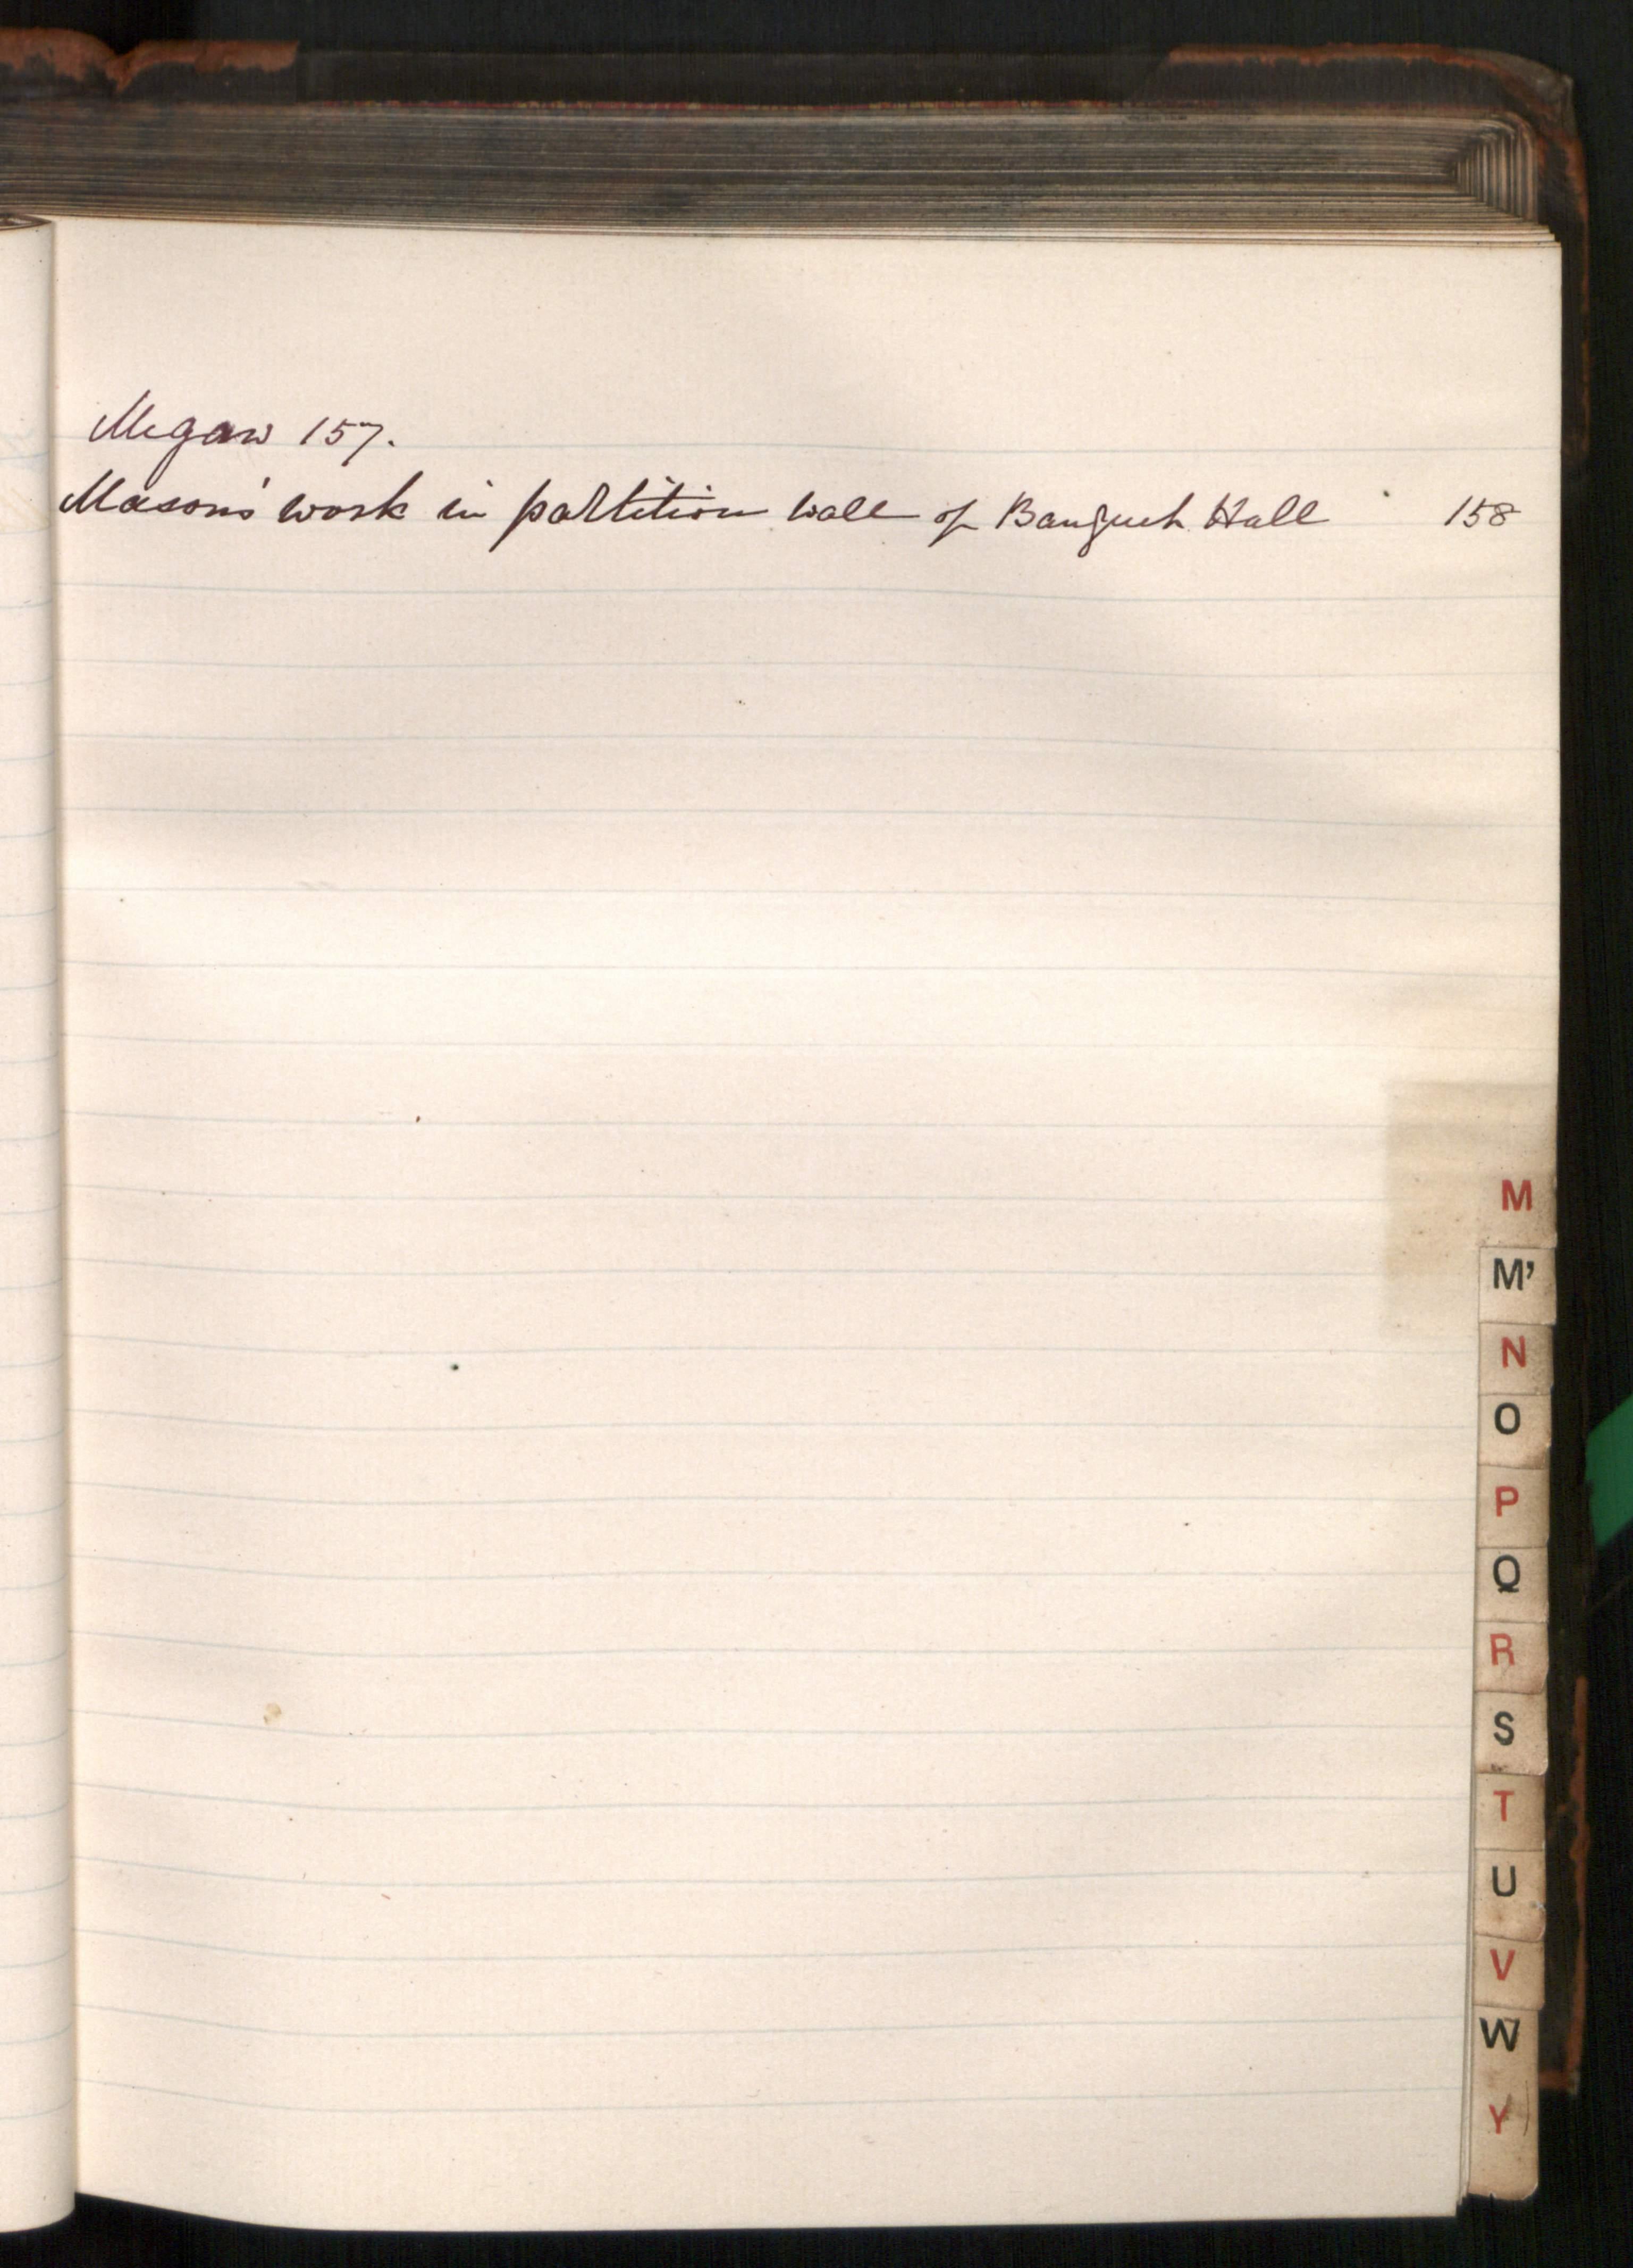 Megaw 157.
Mason's work in partition wall of Banquet Hall 158
M
M'
N
O
P
Q
R
S
T
U
V
W
Y